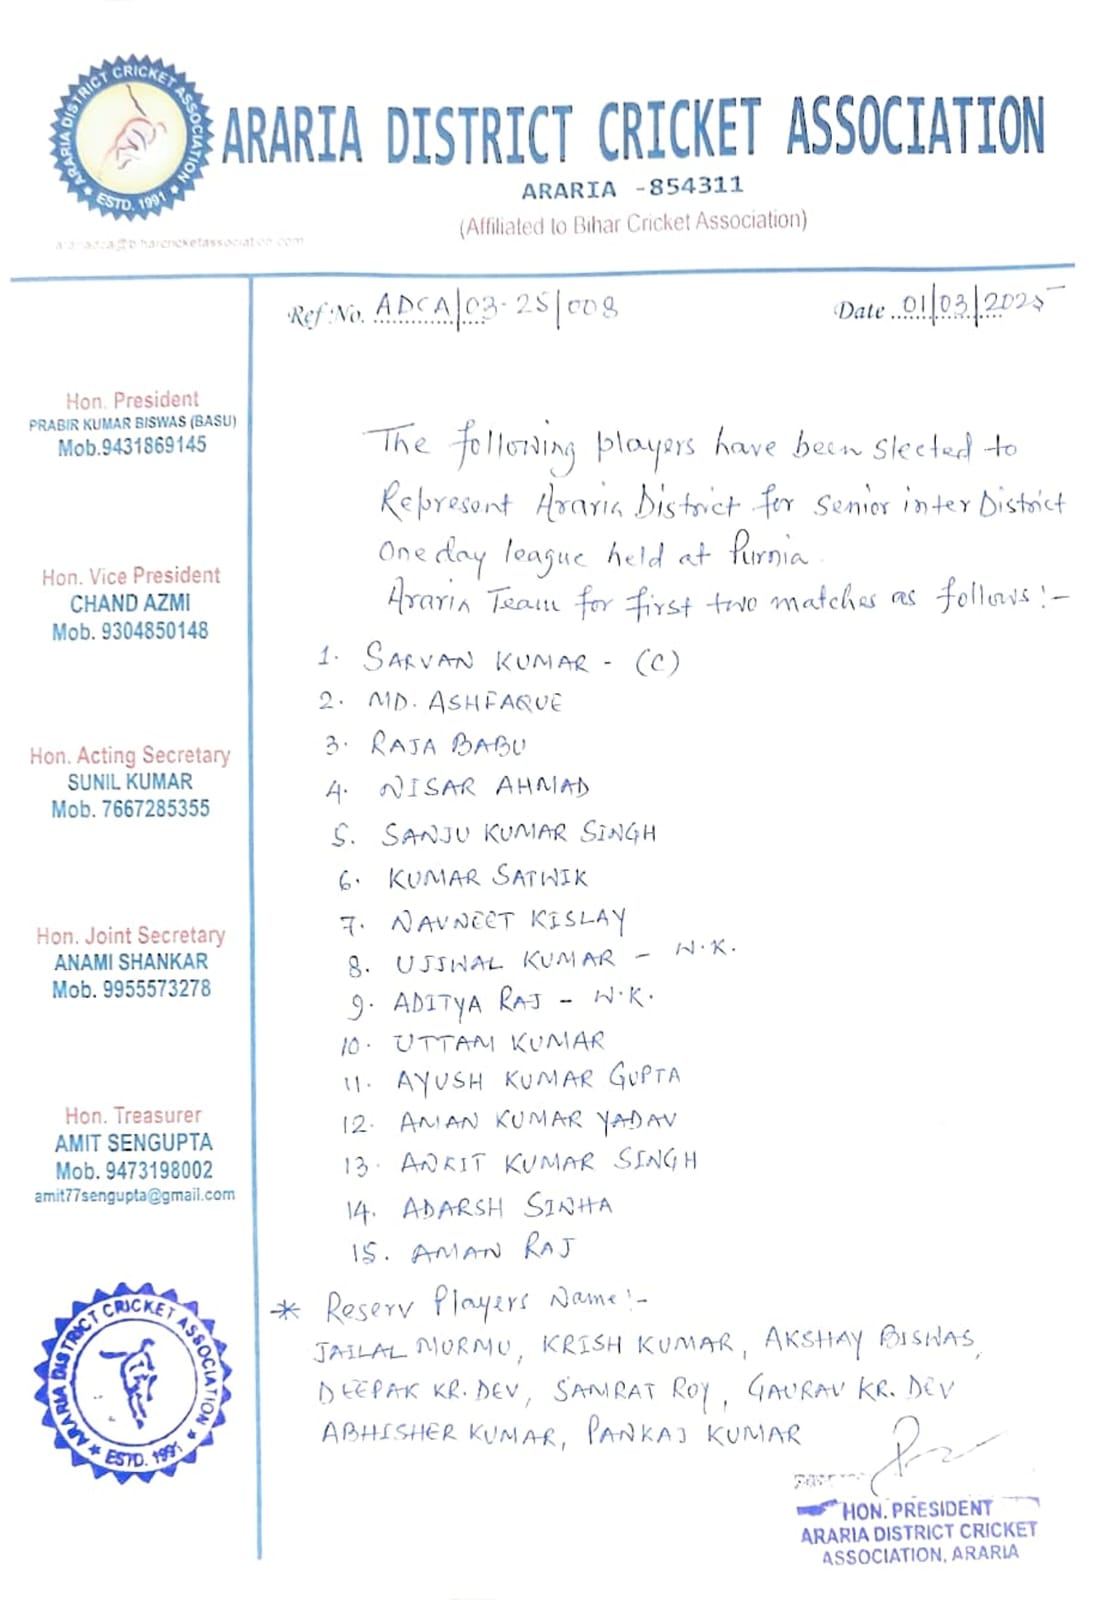 ARARIA DISTRICT CRICKET ASSOCIATION
ESTD. 1991
ARARIA DISTRICT CRICKET ASSOCIATION
ARARIA -854311
(Affiliated to Bihar Cricket Association)
arariadca@biharcricketassociation.com
Ref:No. ADCA/03-25/008
Date 01/03/2025
Hon. President
PRABIR KUMAR BISWAS (BASU)
Mob.9431869145
Hon. Vice President
CHAND AZMI
Mob. 9304850148
Hon. Acting Secretary
SUNIL KUMAR
Mob. 7667285355
Hon. Joint Secretary
ANAMI SHANKAR
Mob. 9955573278
Hon. Treasurer
AMIT SENGUPTA
Mob. 9473198002
amit77sengupta@gmail.com
ARARIA DISTRICT CRICKET ASSOCIATION
ESTD. 1991
The following players have been slected to
Represent Araria District for Senior inter District
One day league held at Purnia.
Araria Team for first two matches as follows:-
1. SARVAN KUMAR - (C)
2. MD. ASHFAQUE
3. RAJA BABU
4. NISAR AHMAD
5. SANJU KUMAR SINGH
6. KUMAR SATWIK
7. NAVNEET KISLAY
8. UJJWAL KUMAR - W.K.
9. ADITYA RAJ - W.K.
10. UTTAM KUMAR
11. AYUSH KUMAR GUPTA
12. AMAN KUMAR YADAV
13. ANKIT KUMAR SINGH
14. ADARSH SINHA
15. AMAN RAJ
* Reserv Players Name:-
JAILAL MURMU, KRISH KUMAR, AKSHAY BISWAS,
DEEPAK KR. DEV, SAMRAT ROY, GAURAV KR. DEV
ABHISHEK KUMAR, PANKAJ KUMAR
HON. PRESIDENT
ARARIA DISTRICT CRICKET
ASSOCIATION, ARARIA